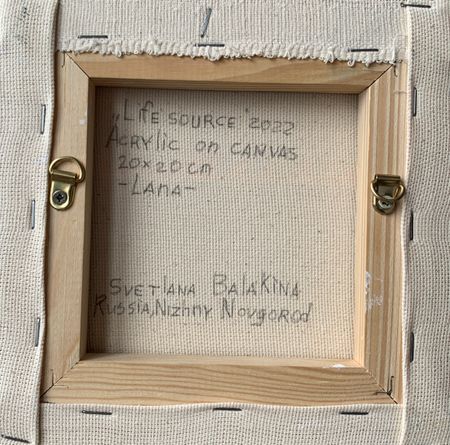 „Life source" 2022
Acrylic on canvas
20x20 cm
-Lana-
Svetlana Balakina
Russia, Nizhny Novgorod